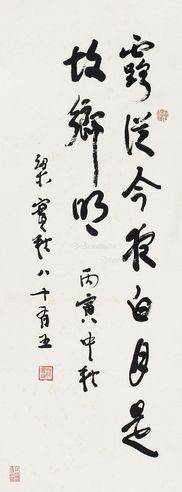 露從今夜白月是
故鄉明
丙寅中秋
梁實秋八十有五